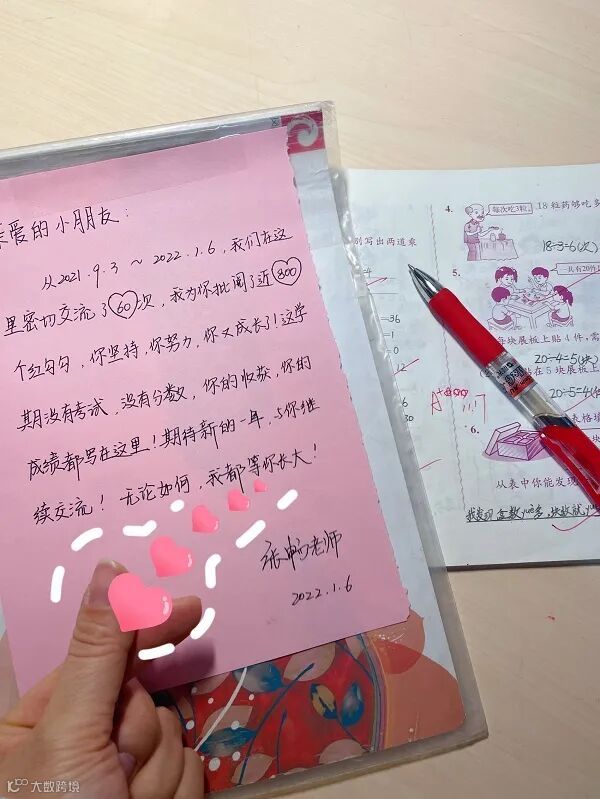 亲爱的小朋友：
从2021.9.3 ~ 2022.1.6，我们在这
里密切交流了60次，我为你批阅了近300
个红勾勾，你坚持，你努力，你又成长了！这学
期没有考试，没有分数，你的收获，你的
成绩都写在这里！期待新的一年，与你继
续交流！无论如何，我都等你长大！
张畅老师
2022.1.6
别写出两道乘
=36
4.
每次吃3粒。
18粒药够吃多
18÷3=6(次)
5.
一共有20件
每块展板上贴4件，需
20÷4=5(块)
贴在5块展板上
20÷5=4(件
表格填
6.
从表中你能发现
我发现 盒数yuè多，块数就yuè
大数跨境